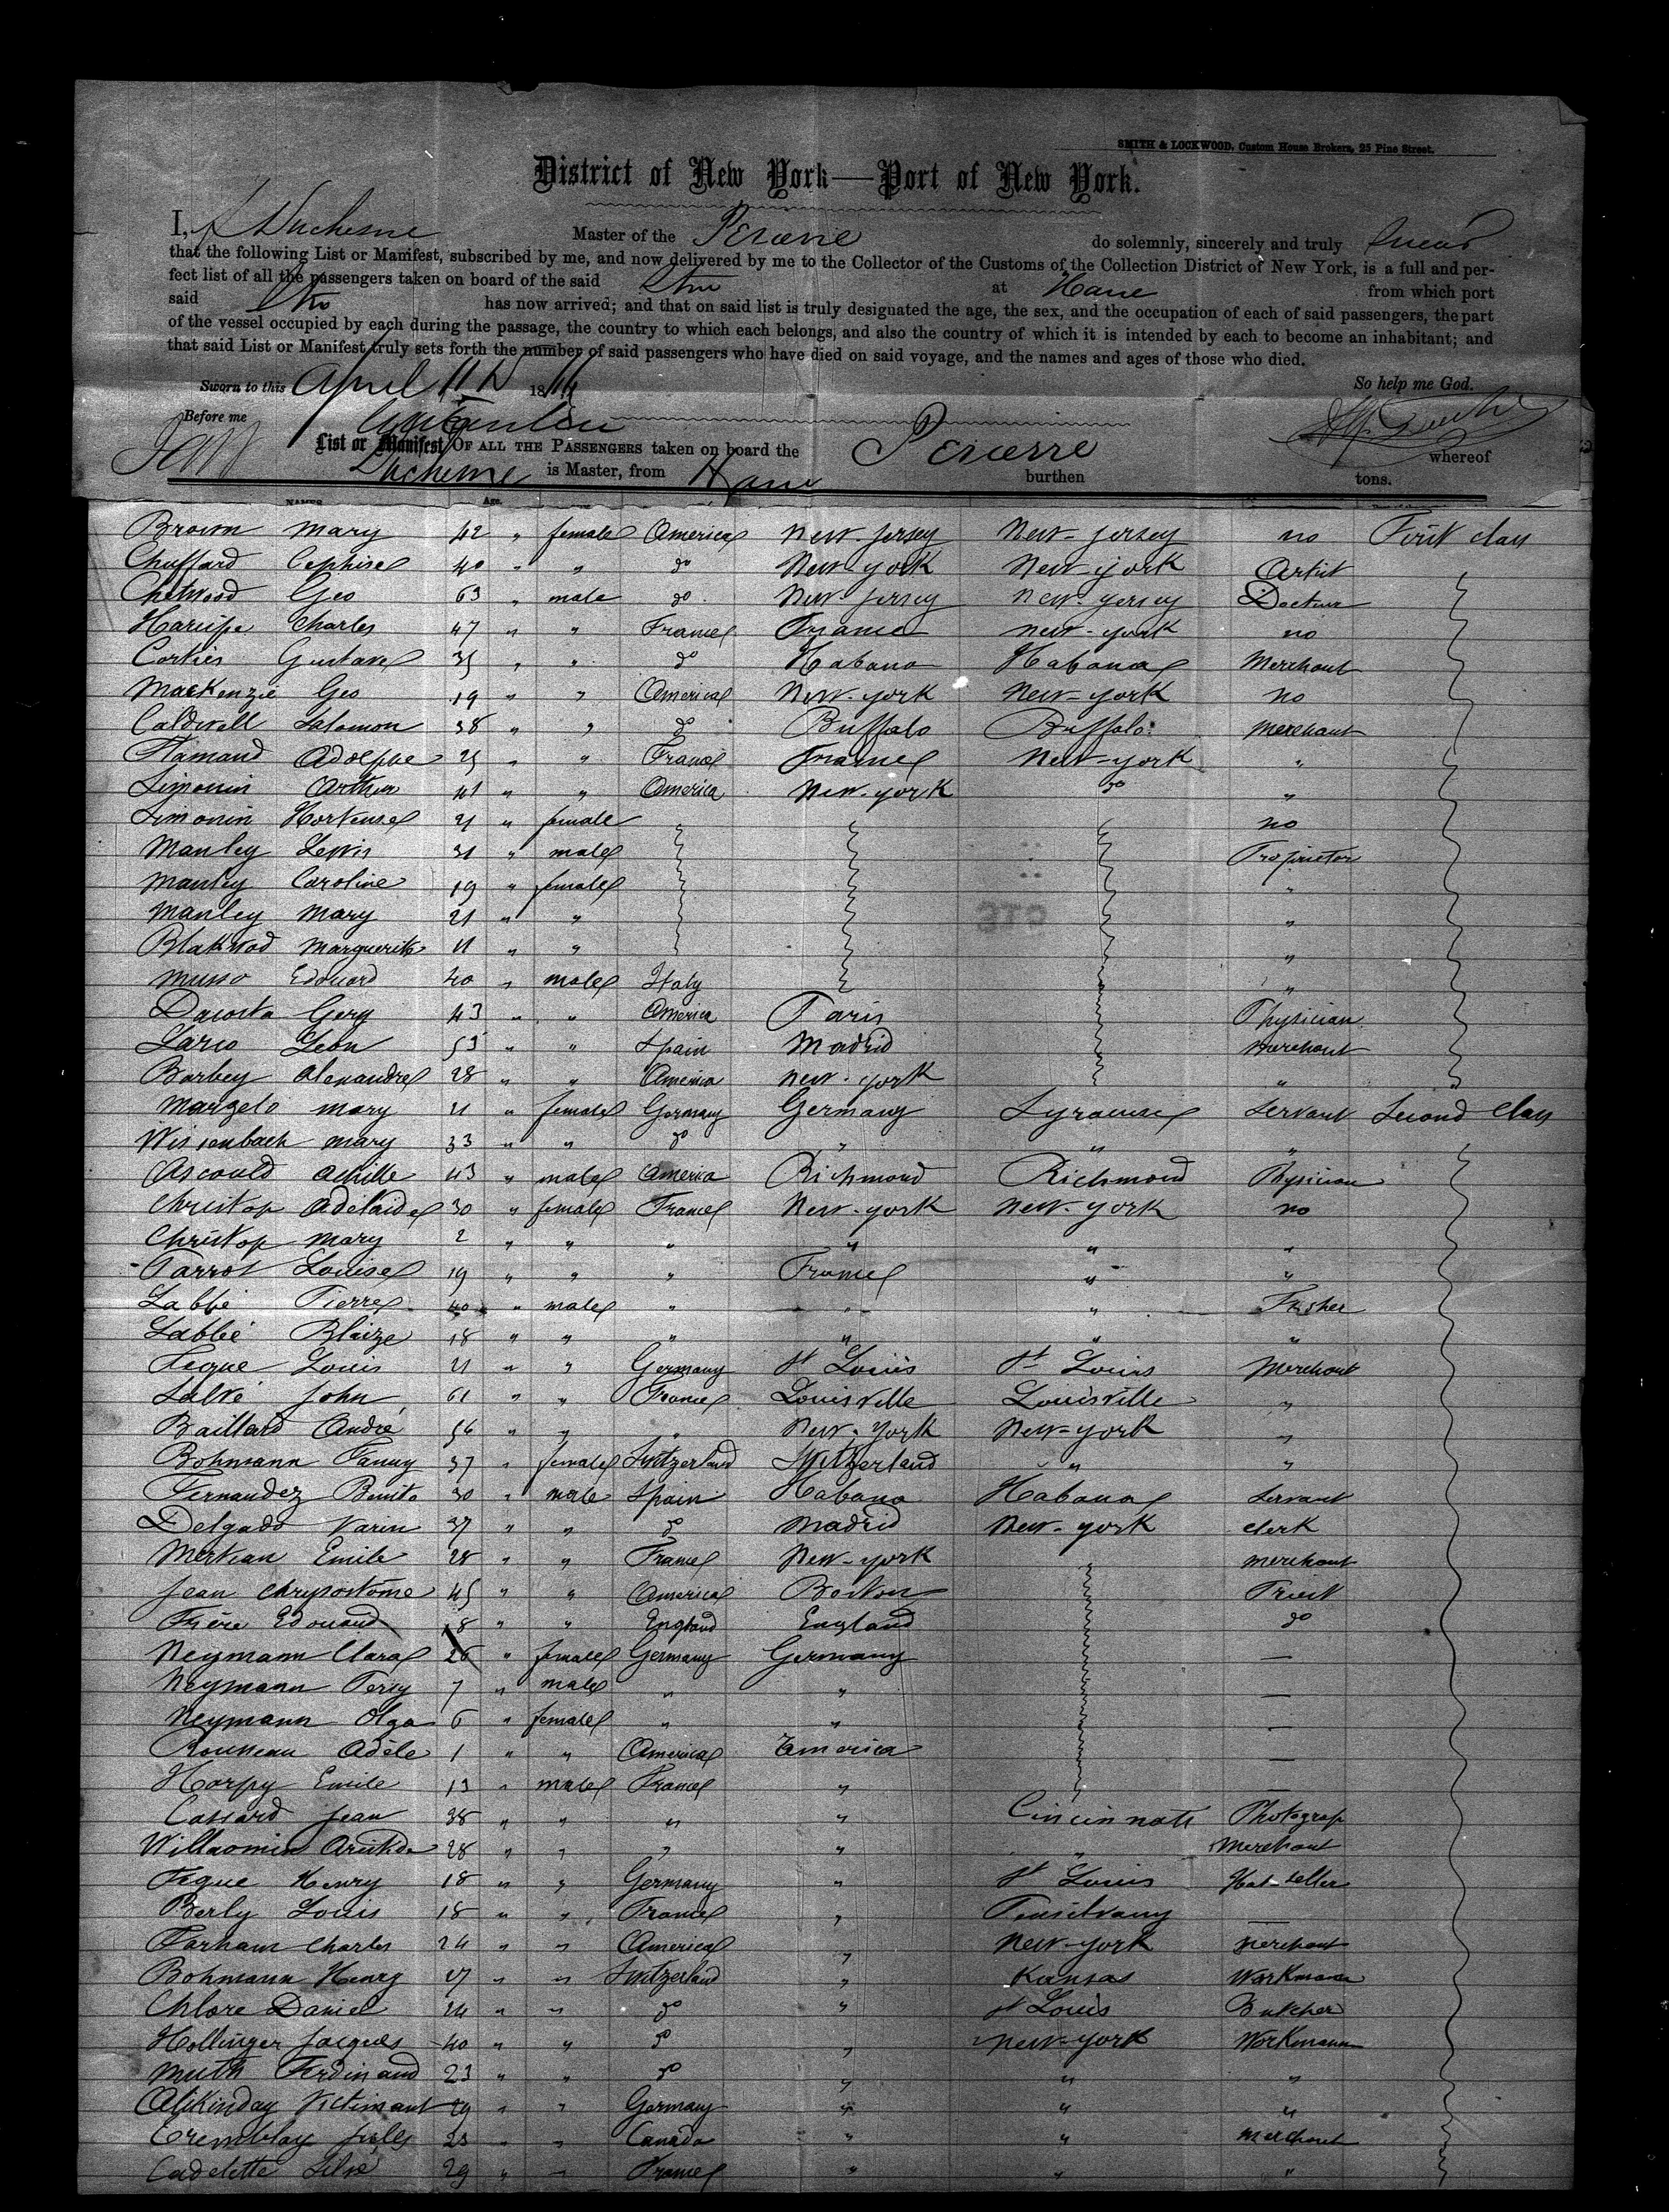 SMITH & LOCKWOOD, Custom House Brokers, 25 Pine Street.
District of New York—Port of New York.
I, Duchesne Master of the Pereire do solemnly, sincerely and truly swear
that the following List or Manifest, subscribed by me, and now delivered by me to the Collector of the Customs of the Collection District of New York, is a full and per-
fect list of all the passengers taken on board of the said Str at Havre from which port
said Str has now arrived; and that on said list is truly designated the age, the sex, and the occupation of each of said passengers, the part
of the vessel occupied by each during the passage, the country to which each belongs, and also the country of which it is intended by each to become an inhabitant; and
that said List or Manifest truly sets forth the number of said passengers who have died on said voyage, and the names and ages of those who died.
Sworn to this April 18 So help me God.
Before me
List or Manifest OF ALL THE PASSENGERS taken on board the Pereire whereof
Duchesne is Master, from Havre burthen tons.
NAMES Age.
Brown Mary 42 " female America New-Jersey New-Jersey no First class
Chuffard Cephise 40 " " do New-york New-york Artist
Chetwood Geo 63 " male do New-Jersey New-Jersey Docteur
Charles 47 " " France France New-york no
Corties Gustave 35 " " do Habana Habana Merchant
MacKenzie Geo 19 " " America New-york New-york no
Caldwell Salomon 38 " " do Buffalo Buffalo Merchant
Flamand Adolphe 25 " " France France New-york "
Simonin Arthur 41 " " America New-york do "
Simonin Hortense 21 " female no
Manley Lewis 31 " male Proprietor
Manley Caroline 19 " female "
Manley Mary 21 " " "
Blakwod Marguerite 11 " " "
Musso Edouard 40 " male Italy "
Dacosta Gerg 43 " " America Paris Physician
Larco Leon 53 " " Spain Madrid Merchant
Barbey Alexandre 28 " " America New-york "
Margelo Mary 21 " female Germany Germany Syracuse Servant Second class
Wissenbach Mary 33 " " do " " "
Ascould Achille 43 " male America Richmond Richmond Physician
Christop Adelaide 30 " female France New-york New-york no
Christop Mary 2 " " " " " "
Parrot Louise 19 " " " France " "
Labbé Pierre 40 " male " " "
Labbé Blaize 18 " " " " " "
Louis 21 " " Germany St Louis St Louis Merchant
Salvé John 61 " " France Louisville Louisville "
Baillard André 56 " " " New-York New-york "
Bohmann Fanny 37 " female Switzerland Switzerland " "
Fernandez Benito 30 " male Spain Habana Habana Servant
Delgado Varin 27 " " do Madrid New-york clerk
Emile 28 " " France New-york Merchant
Jean Chrysostôme 45 " " America Boston Priest
Frère Edouard 18 " " England England do
Neymann Clara 26 " female Germany Germany —
Neymann Percy 7 " male " " —
Neymann Olga 6 " female " " —
Rousseau Adèle 1 " " America America —
Harpy Emile 13 " male France " —
Cassard Jean 38 " " " " Cincinnati Photograp
Aristide 28 " " " " " Merchant
Henry 18 " " Germany " St Louis Hat-Seller
Berly Louis 18 " " France " —
Farham Charles 24 " " America " New-york Merchant
Bohmann Henry 27 " " Switzerland " Kansas Workmann
Chlore Daniel 24 " " do " St Louis Butcher
Hollinger Jacques 40 " " do " New-york Workmann
Muth Ferdinand 23 " " do " " "
29 " " Germany " " "
Tremblay Jules 23 " " Canada " " Merchant
Cadelette 29 " " France " " "